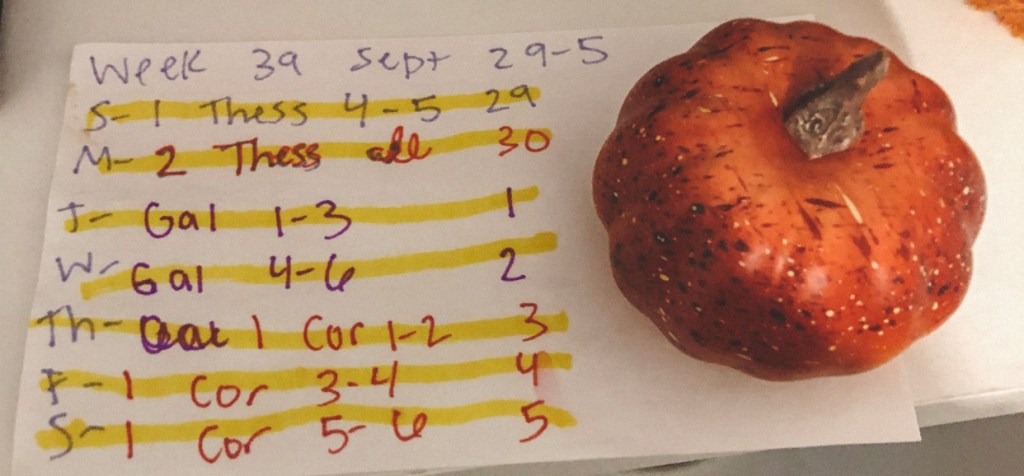 Week 39 Sept 29-5
S- 1 Thess 4-5 29
M- 2 Thess all 30
T- Gal 1-3 1
W- Gal 4-6 2
Th- 1 Cor 1-2 3
F- 1 Cor 3-4 4
S- 1 Cor 5-6 5